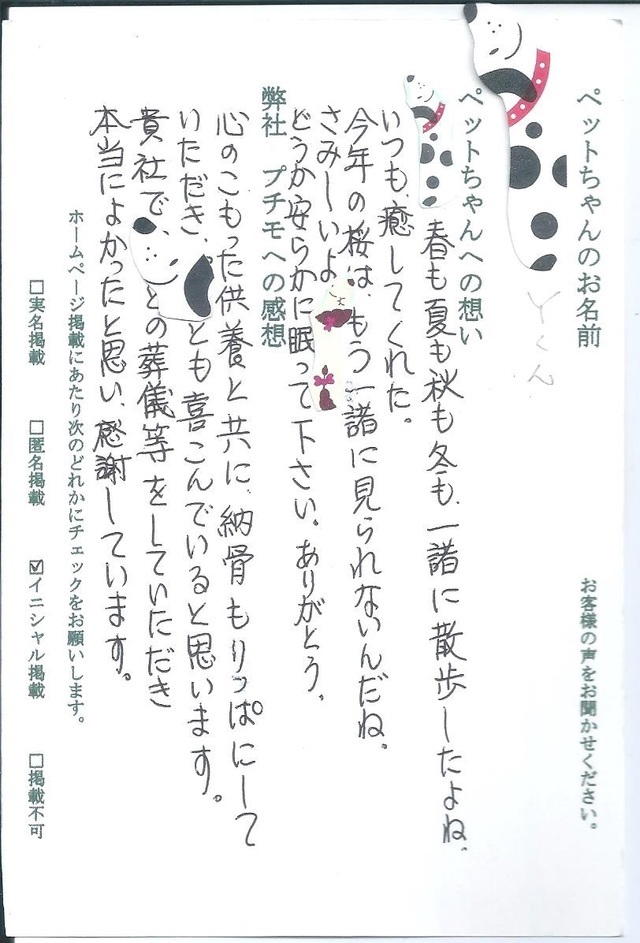 お客様の声をお聞かせください。
ペットちゃんのお名前
Yくん
ペットちゃんへの想い
春も夏も秋も冬も、一諸に散歩したよね。
いつも、癒してくれた。
今年の桜は、もう一諸に見られないんだね。
さみしいよ
どうか安らかに眠って下さい。ありがとう。
弊社 プチモへの感想
心のこもった供養と共に、納骨もりっぱにして
いただき、とも喜こんでいると思います。
貴社で、との葬儀等をしていただき
本当によかったと思い、感謝しています。
ホームページ掲載にあたり次のどれかにチェックをお願いします。
□実名掲載 □匿名掲載 ☑イニシャル掲載 □掲載不可